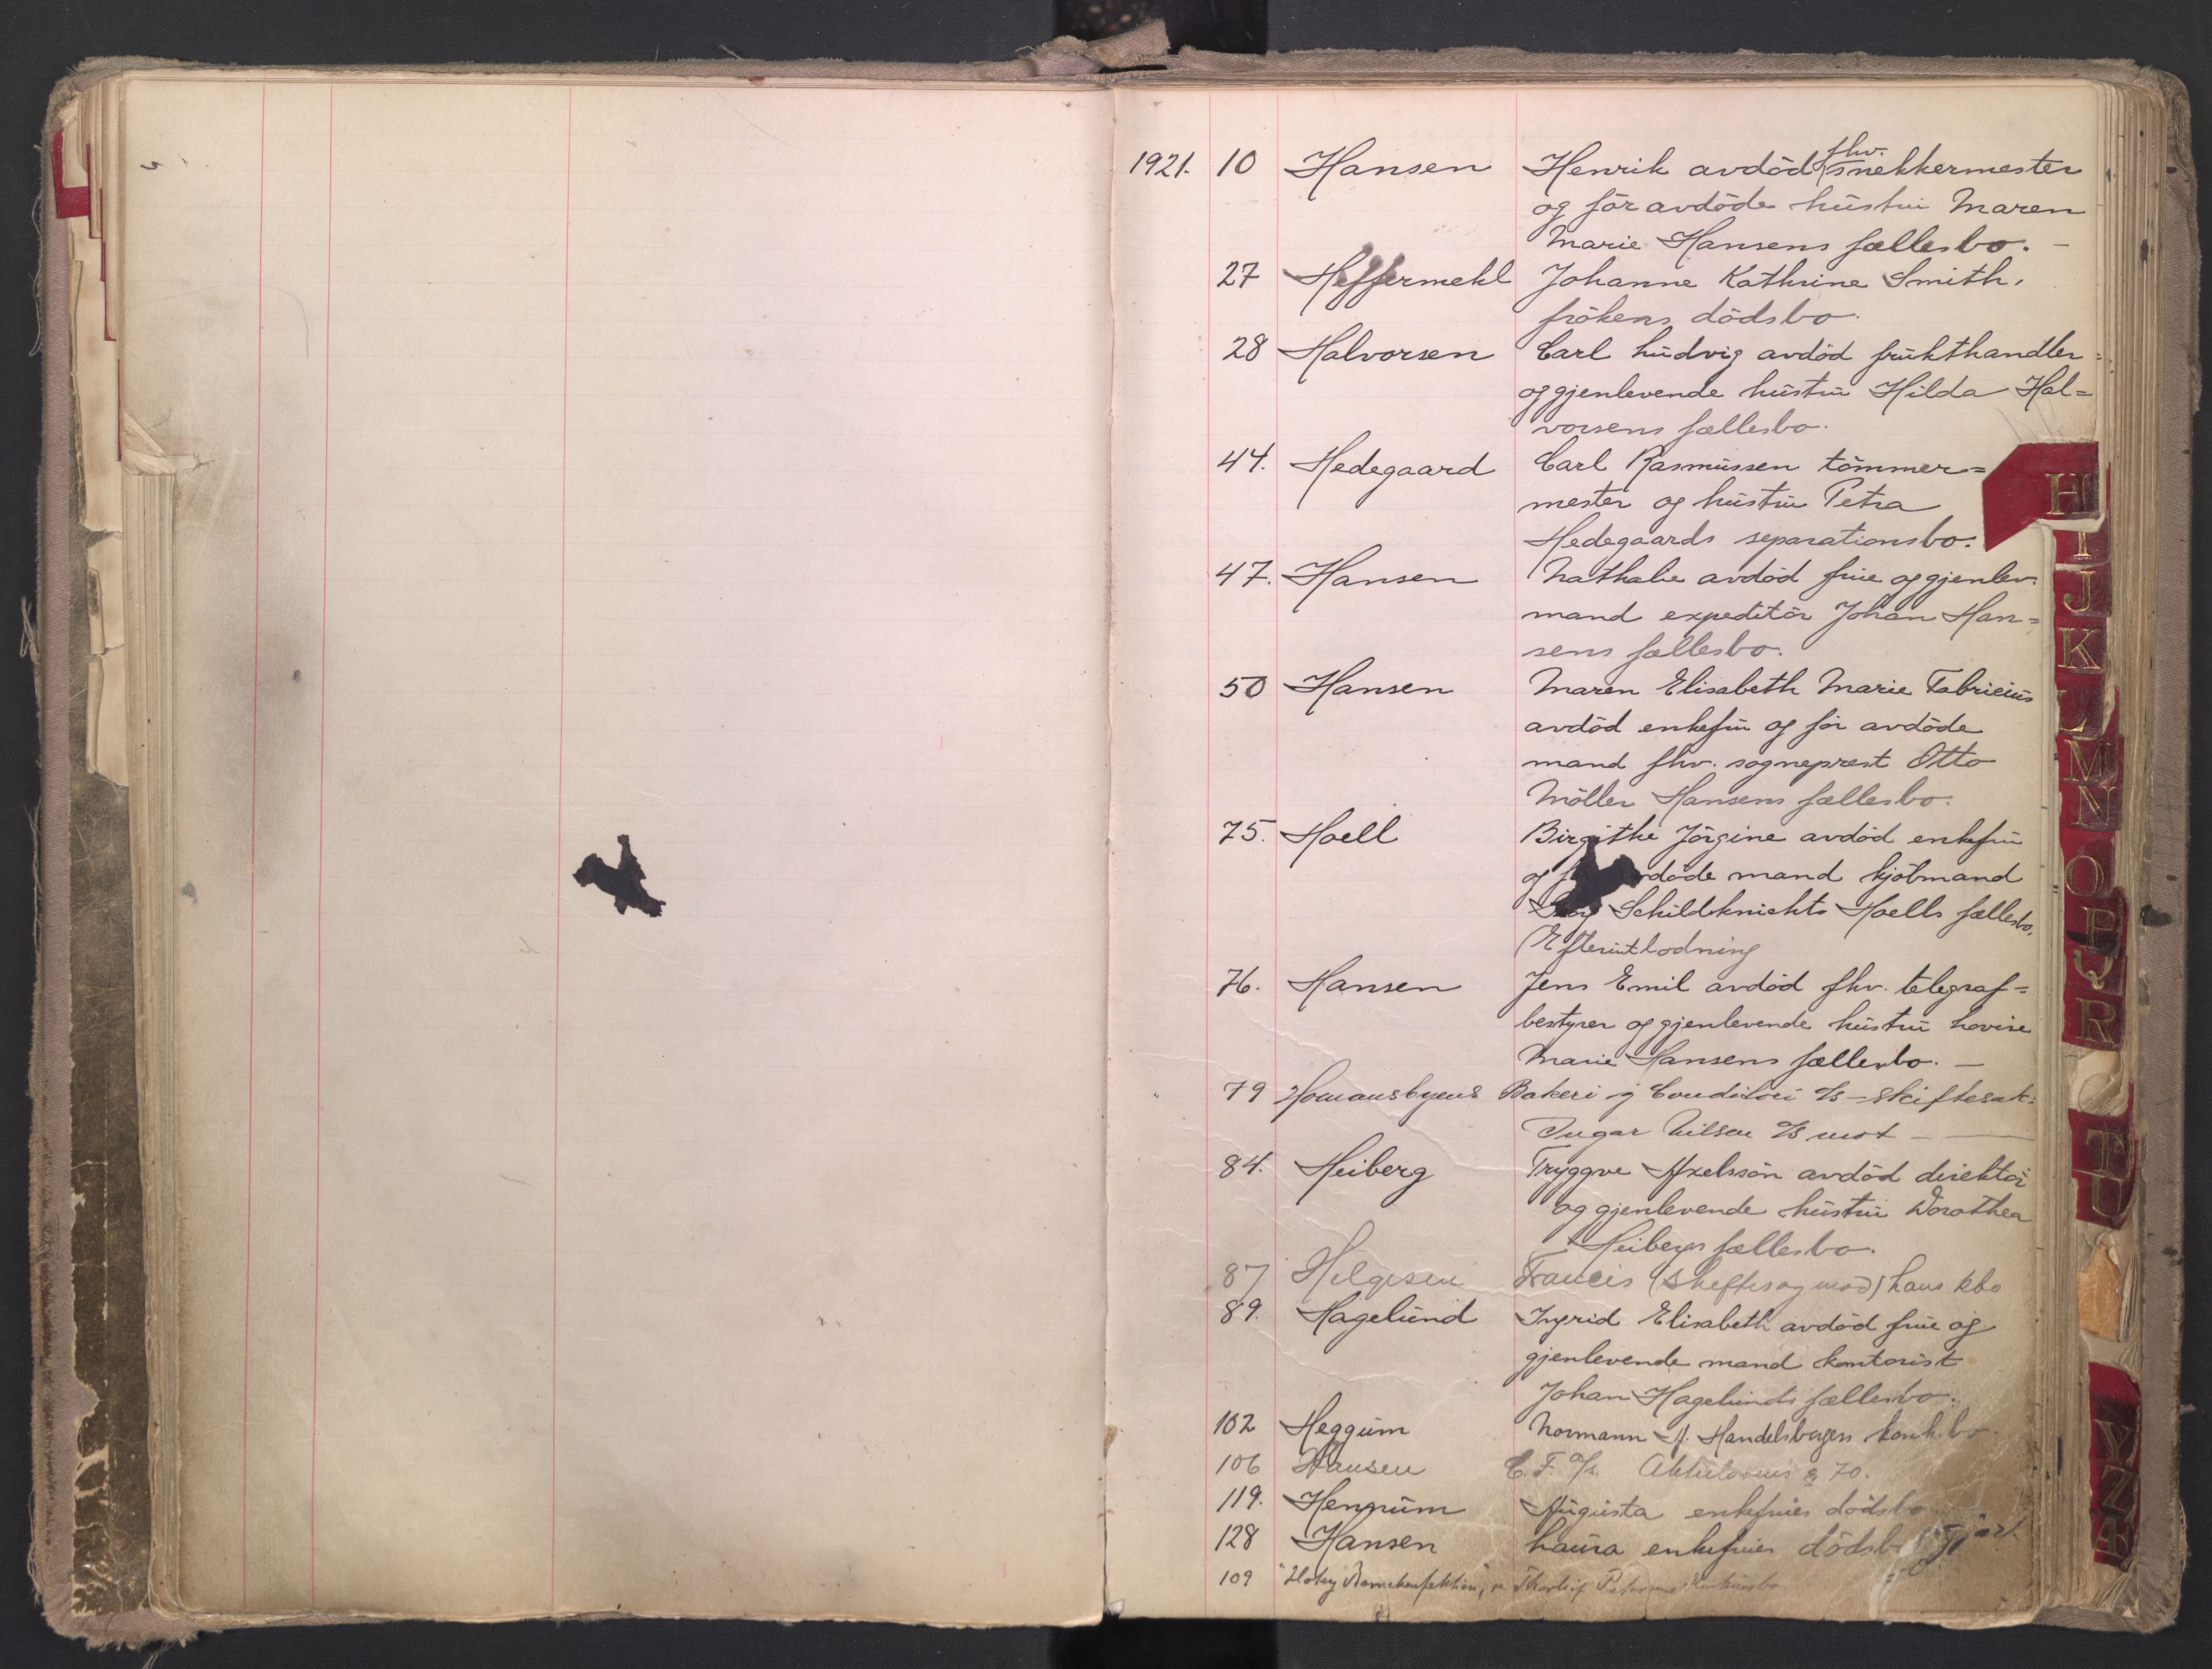 1921. 10 Hansen Henrik avdöd fhv. snekkermester
og för avdöde hüstrü Maren
Marie Hansens fællesbo. –
27 Heffermehl Johanne Kathrine Smith,
frökens dödsbo.
28 Halvorsen Carl Ludvig avdöd frükthandler
og gjenlevende hüstrü Hilda Hal=
vorsens fællesbo.
44. Hedegaard Carl Rasmüssen tömmer=
mester og hüstrü Petra
Hedegaards separationsbo.
47. Hansen Nathalie avdöd frue og gjenlev.
mand expeditör Johan Han=
sens fællesbo.
50 Hansen Maren Elisabeth Marie Fabricius
avdöd enkefrü og för avdöde
mand fhv. sogneprest Otto
Möller Hansens fællesbo.
75. Hoell Birgithe Jörgine avdöd enkefrü
og avdöde mand kjöbmand
Schildknichts Hoells fællesbo.
(Efterütlodning
76. Hansen Jens Emil avdöd fhv. telegraf=
bestyrer og gjenlevende hüstrü Lovise
Marie Hansens fællesbo. –
79 Homansbyens Bakeri og Conditori A/S – skiftesak:
Ingar Nilsen A/S mot –
84. Heiberg Tryggve Axelssön avdöd direktör
og gjenlevende hüstrü Dorothea
Heibergs fællesbo.
87 Helgesen Francis (skiftesag mod) hans kbo
89. Hagelünd Ingrid Elisabeth avdöd frue og
gjenlevende mand kontorist
Johan Hagelünds fællesbo.
102 Heggüm Normann A. Handelsbygen konk.bo.
106 Hansen C. F. A/S. Aktielovens § 70.
119. Hennüm Augusta enkefrues dödsbo
128 Hansen Laura enkefrues dödsbo
109 "Hoky Damekonfektion", v Thorleif Petersens Konkursbo
H
I
J
K
L
M
N
O
P
Q
R
T
U
V
Z